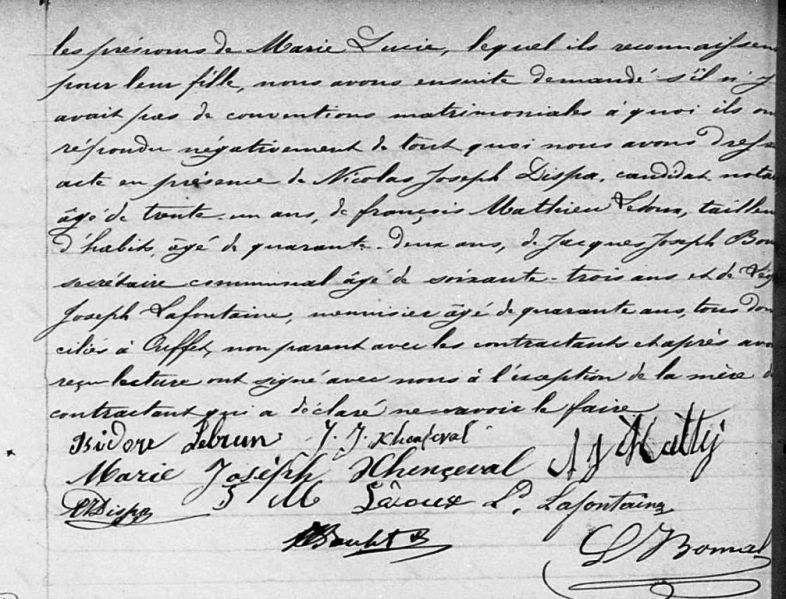 les prénoms de Marie Lucie, lequel ils reconnaissen
pour leur fille, nous avons ensuite demandé s'il n'y
avait pas de conventions matrimoniales à quoi ils on
répondu négativement de tout quoi nous avons dressé
acte en présence de Nicolas Joseph Dispa, candidat nota
âgé de trente-un ans, de françois Mathieu Ledoux, tailleur
d'habits, âgé de quarante-deux ans, de Jacques Joseph Bom
secrétaire communal âgé de soixante-trois ans et de
Joseph Lafontaine, menuisier âgé de quarante ans, tous dom
ciliés à Ouffet, non parent avec les contractants et après avoi
reçu lecture ont signé avec nous à l'exception de la mère d
contractant qui a déclaré ne savoir le faire
Isidore Lebrun J. J. Xhenseval
Marie Joséph Xhençeval
Dispa F M Ledoux Ld. Lafontaine
Bomal